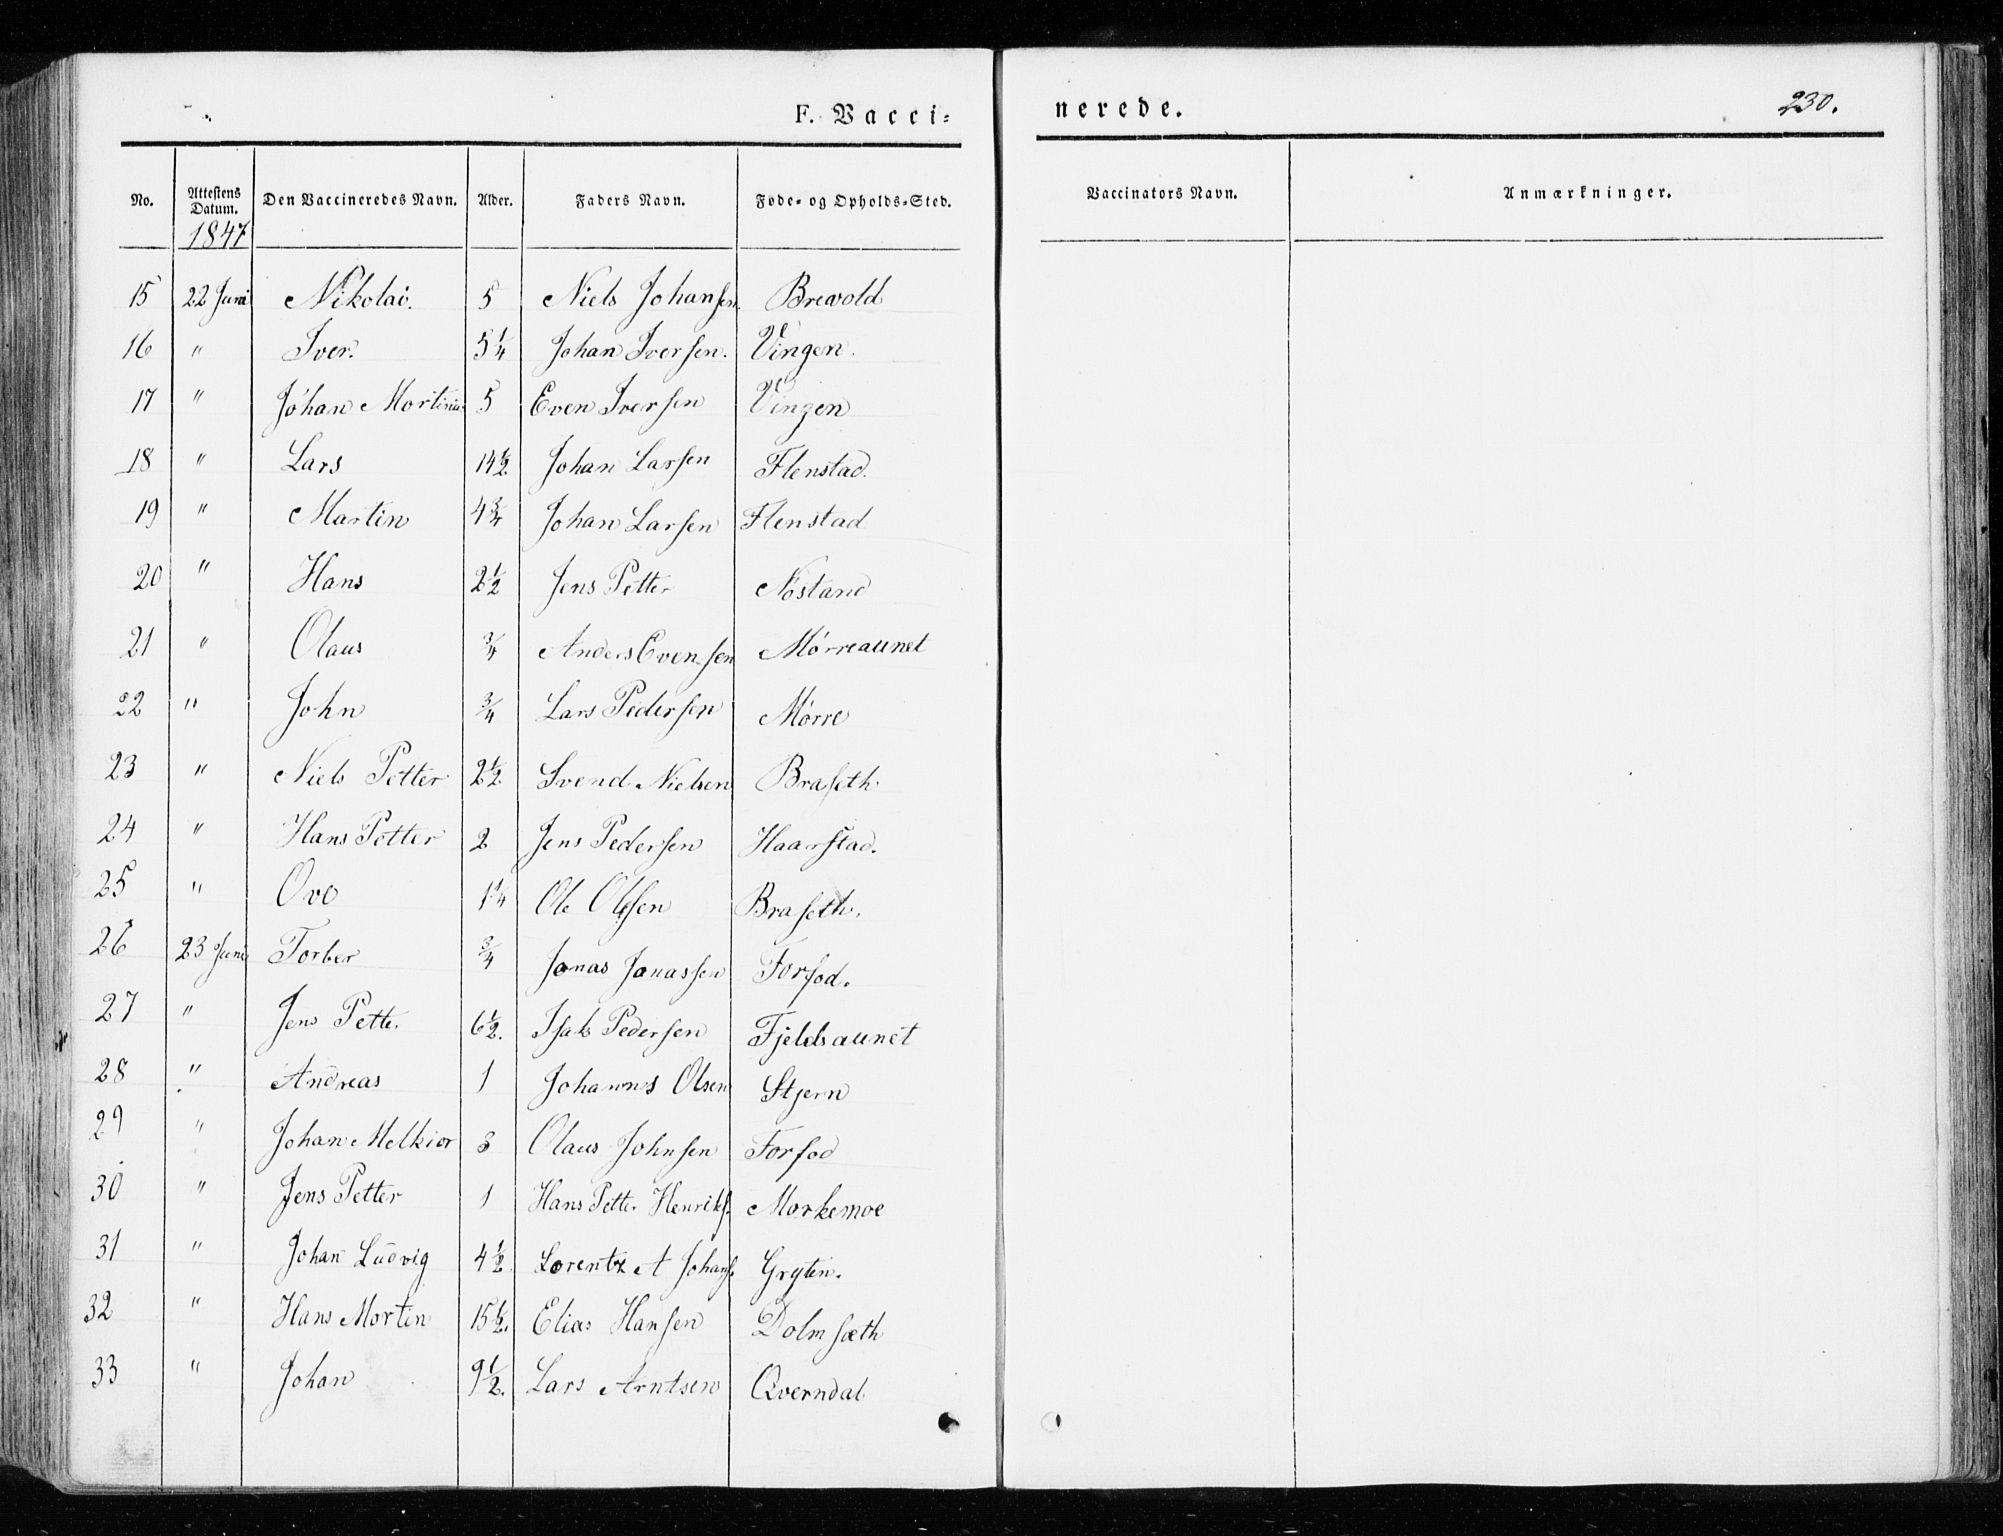 F. Vacci-
nerede.
230.
No. Attestens Datum. Den Vaccineredes Navn. Alder. Faders Navn. Føde- og Opholds-Sted. Vaccinators Navn. Anmærkninger.
1847
15 22 Juni Nikolai. 5 Niels Johansen. Brevold
16 " Iver. 5 1/4 Johan Iversen. Vingen.
17 " Johan Mortinius 5 Even Iversen Vingen
18 " Lars 14 1/2 Johan Larsen Flenstad.
19 " Martin 4 3/4 Johan Larsen Flenstad
20 " Hans 2 1/2 Jens Petter Nøstand
21 " Olaus 3/4 Anders Evensen Mørreaunet
22 " John 3/4 Lars Pedersen Mørre
23 " Niels Petter 2 1/2 Svend Nielsen Braseth
24 " Hans Petter 2 Jens Pedersen Haarstad.
25 " Ove 1 1/4 Ole Olssen Braseth.
26 23 Juni Torber 3/4 Jonas Jonassen Forfod.
27 " Jens Petter 6 1/2. Isak Pedersen Fjeldsaunet
28 " Andreas 1 Johannes Olsen Stjern
29 " Johan Melkior 3 Olaus Johnsen Forfod
30 " Jens Petter 1 Hans Petter Henriks. Morkemoe
31 " Johan Ludvig 4 1/2 Lorentz A Johans. Gryten.
32 " Hans Mortin 15 1/2. Elias Hansen Dolmsæth
33 " Johan 9 1/2. Lars Arntsen Qverndal